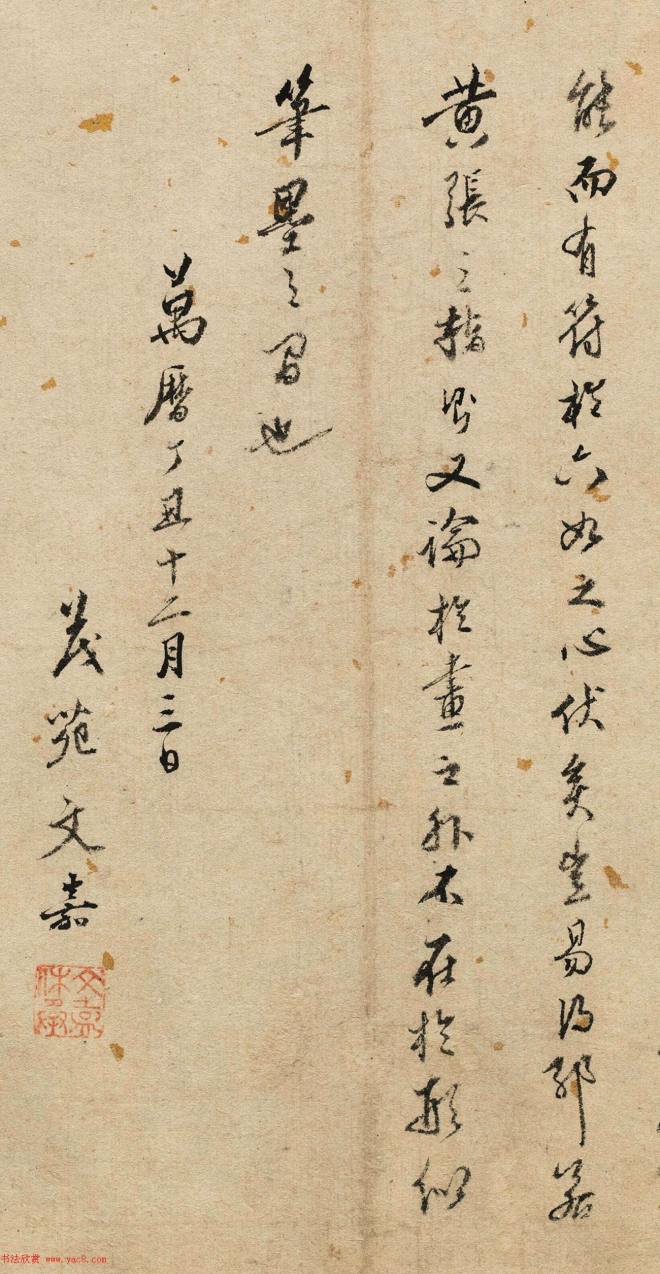 能而有符於六如之心伏矣豈易得耶若
黄張之指則又論於畫之外不在於形似
筆墨之間也
萬曆丁丑十二月三日
茂苑文嘉
书法欣赏 www.yac8.com